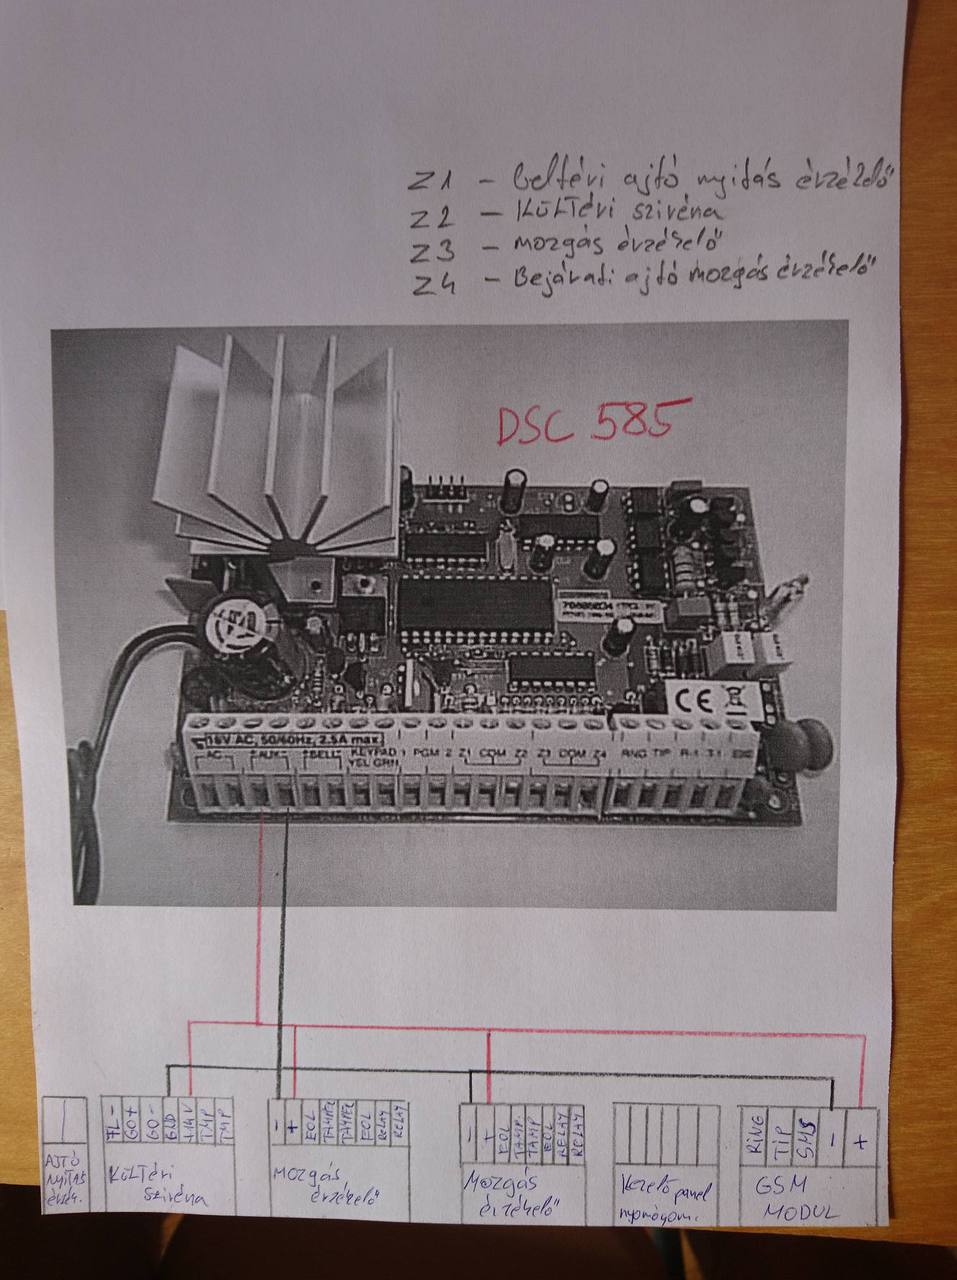 Z1 - Beltéri ajtó nyitás érzékelő
Z2 - Kültéri sziréna
Z3 - mozgás érzékelő
Z4 - Bejárati ajtó mozgás érzékelő
DSC 585
16V AC, 50/60Hz, 2.5A max.
AC AUX BELL KEYPAD 1 PGM 2 Z1 COM Z2 Z3 COM Z4 RING TIP R-1 T-1 EGND
YEL GRN
CE
FL -
GO +
GO -
GND
+14V
TMP
TMP
-
+
EOL
TAMPER
TAMPER
EOL
RELAY
RELAY
-
+
EOL
TAMP.
TAMP
EOL
RELAY
RELAY
RING
TIP
SMS
-
+
AJTÓ
NYITÁS
érzék.
Kültéri
sziréna
Mozgás
érzékelő
Mozgás
érzékelő
Kezelő panel
GSM
MODUL